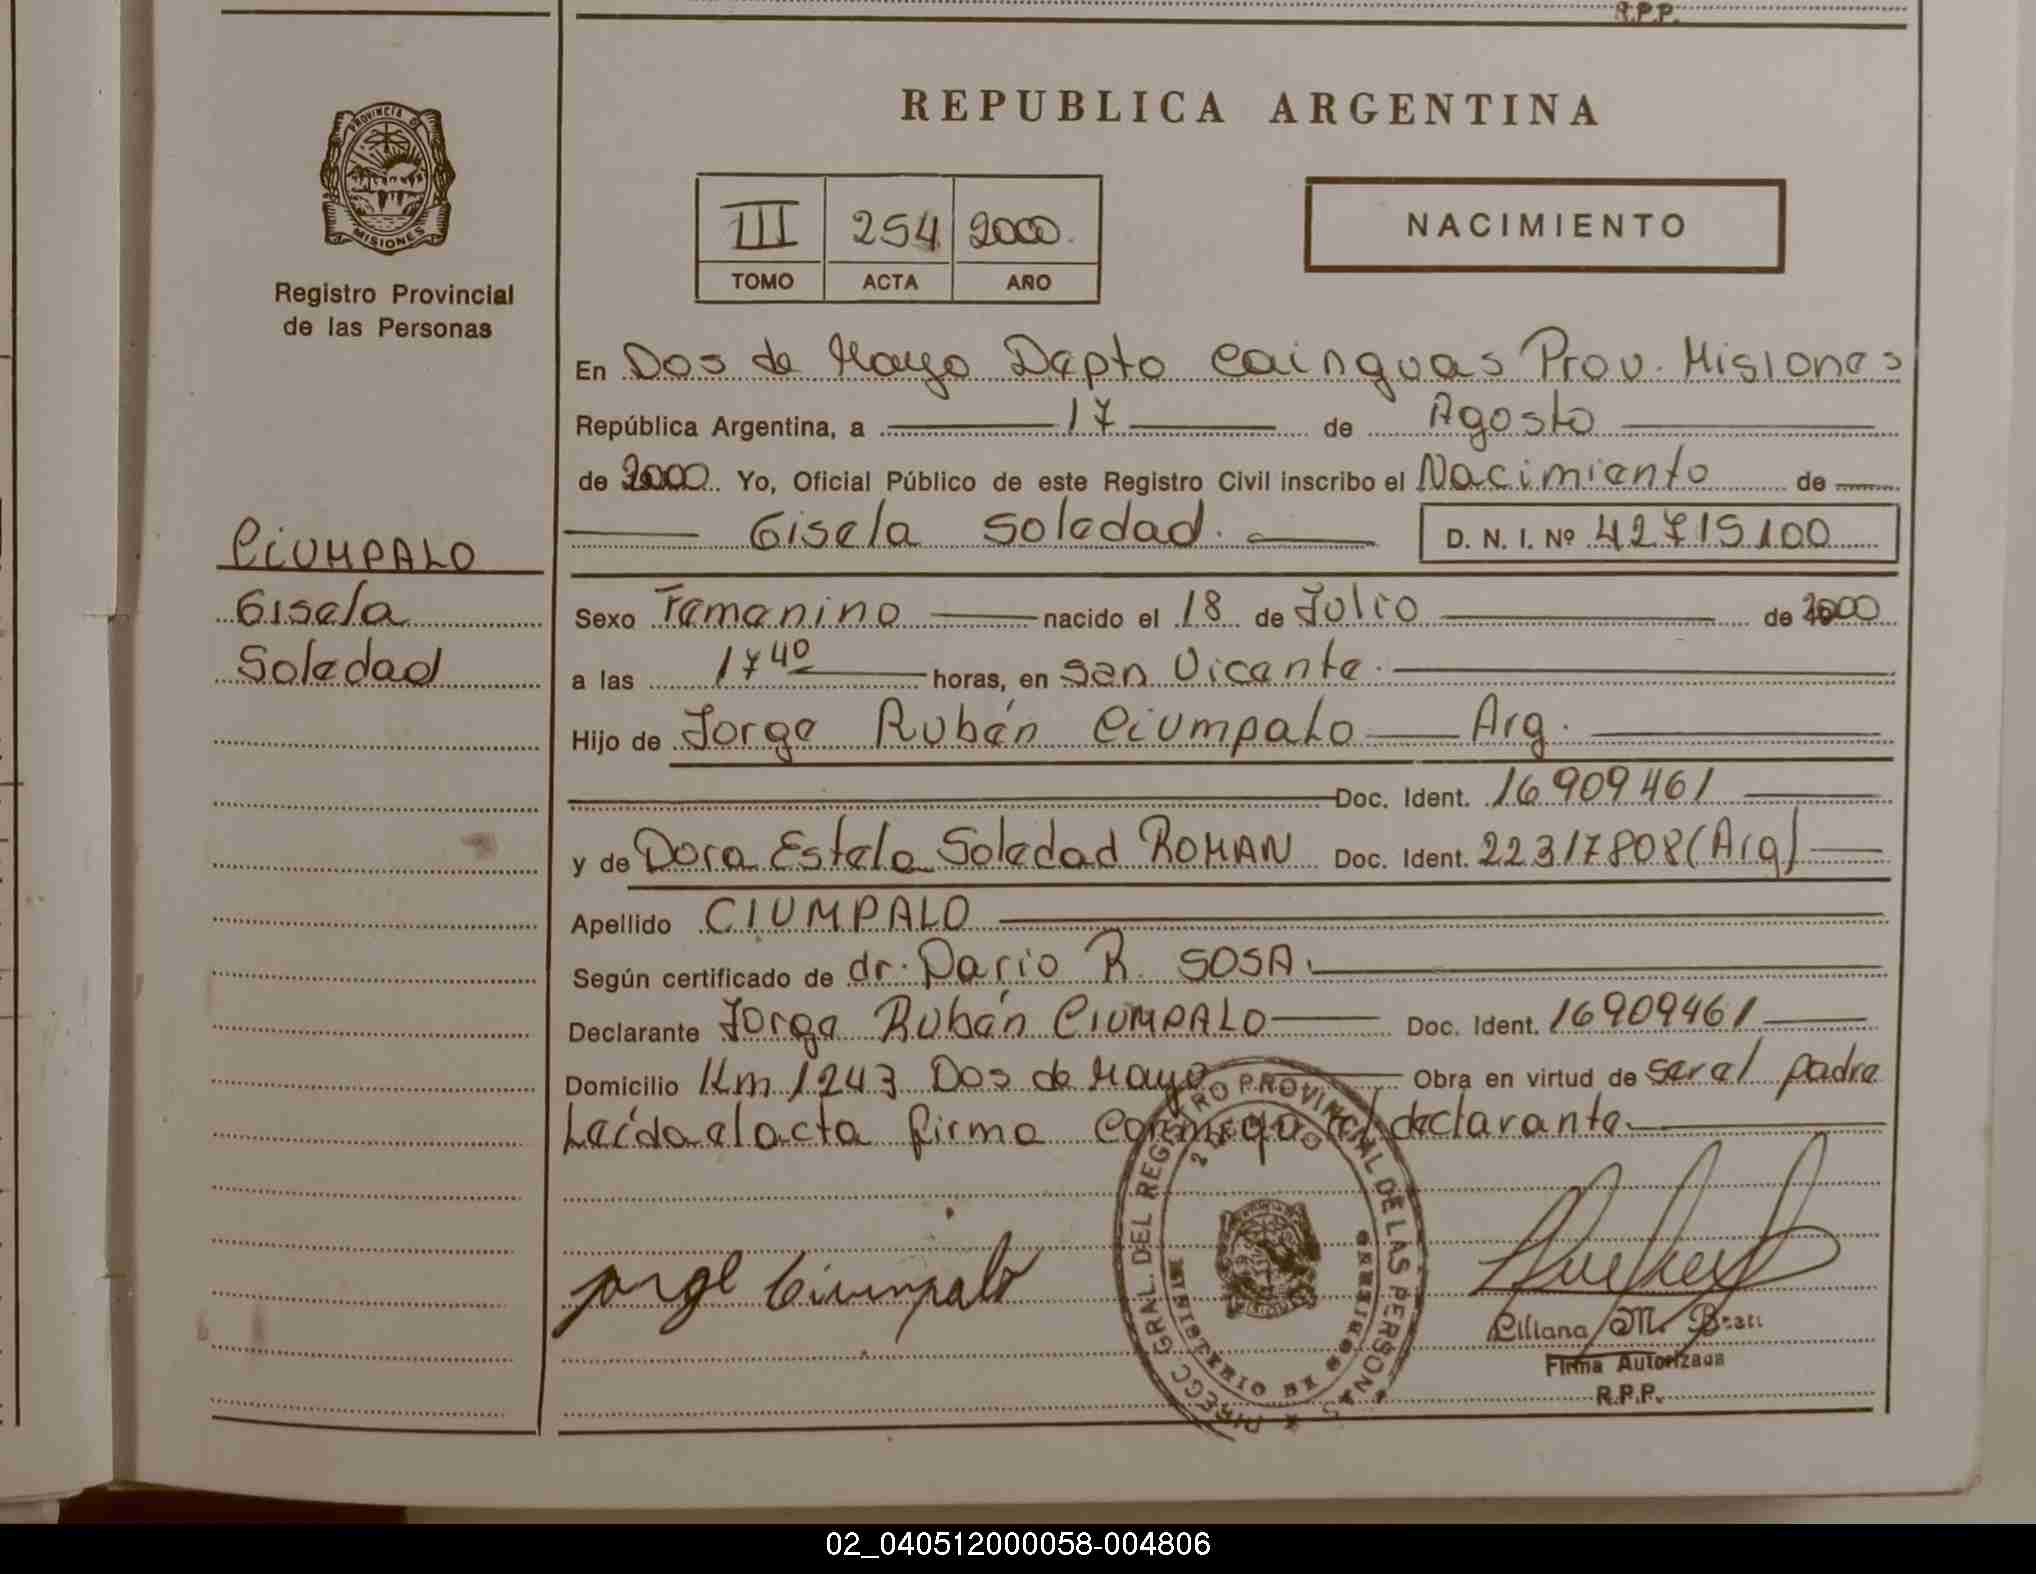 R.P.P.
REPUBLICA ARGENTINA
PROVINCIA DE
MISIONES
III 254 2000
TOMO ACTA AÑO
NACIMIENTO
Registro Provincial
de las Personas
En Dos de Mayo Depto Cainguas Prov. Misiones
República Argentina, a 17 de Agosto
de 2000 Yo, Oficial Público de este Registro Civil inscribo el Nacimiento de
Gisela Soledad. D. N. I. Nº 42715100
CIUMPALO
Gisela
Soledad
Sexo Femenino nacido el 18 de Julio de 2000
a las 17 40 horas, en San Vicente.
Hijo de Jorge Rubén Ciumpalo Arg.
Doc. Ident. 16909461
y de Dora Estela Soledad ROMAN Doc. Ident. 22317808 (Arg)
Apellido CIUMPALO
Según certificado de dr. Dario R. SOSA.
Declarante Jorge Rubén CIUMPALO Doc. Ident. 16909461
Domicilio Km 1243 Dos de Mayo Obra en virtud de ser el padre
Leída el acta firma conmigo el declarante.
DIRECC. GRAL. DEL REGISTRO PROVINCIAL DE LAS PERSONAS
2 DE MAYO
MINISTERIO DE GOBIERNO
Jorge Ciumpalo
Liliana M.
Firma Autorizada
R.P.P.
02_040512000058-004806